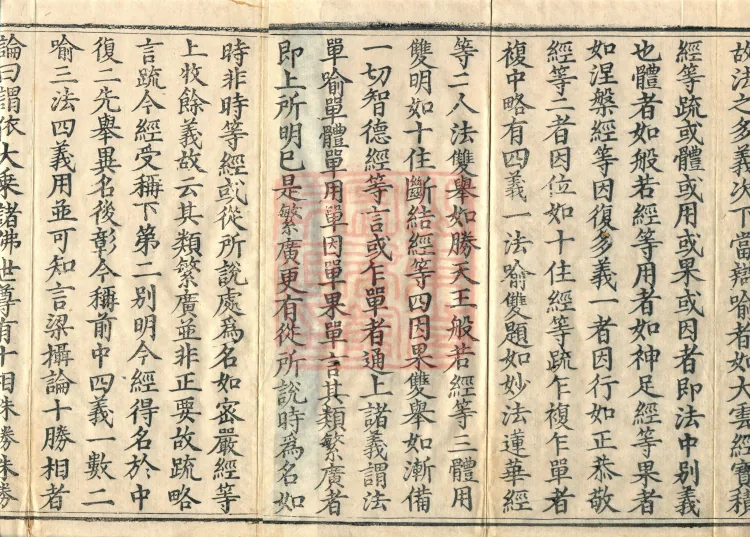 故法之多義次下當辯喻者如大雲經寶積
經等疏或體或用或果或因者即法中別義
也體者如般若經等用者如神足經等果者
如涅槃經等因復多義一者因行如正恭敬
經等二者因位如十住經等疏乍複乍單者
複中略有四義一法喻雙題如妙法蓮華經
等二人法雙舉如勝天王般若經等三體用
雙明如十住斷結經等四因果雙舉如漸備
一切智德經等言或乍單者通上諸義謂法
單喻單體單用單因單果單言其類繁廣者
即上所明已是繁廣更有從所說時為名如
時非時等經或從所說處為名如密嚴經等
上攷餘義故云其類繁廣並非正要故疏略
言疏今經受稱下第二別明今經得名於中
復二先舉異名後彰今稱前中四義一數二
喻三法四義用並可知言梁攝論十勝相者
論曰謂依大乘諸佛世尊有十相殊勝殊勝